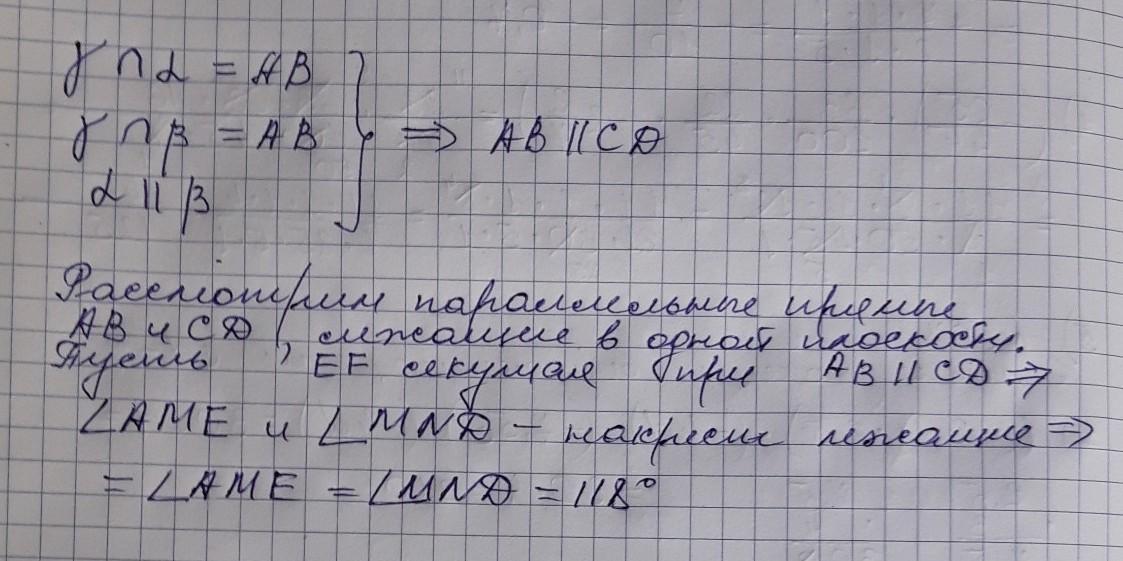 γ ∩ α = AB
γ ∩ β = AB ⇒ AB || CD
α || β
Рассмотрим параллельные прямые
AB и CD, лежащие в одной плоскости.
Пусть, EF секущая при AB || CD ⇒
∠AME и ∠MND - накрест лежащие ⇒
= ∠AME = ∠MND = 118°